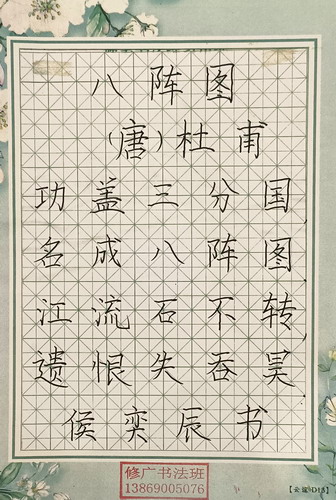 八阵图
（唐）杜甫
功盖三分国
名成八阵图
江流石不转
遗恨失吞昊
侯奕辰书
修广书法班
13869005076